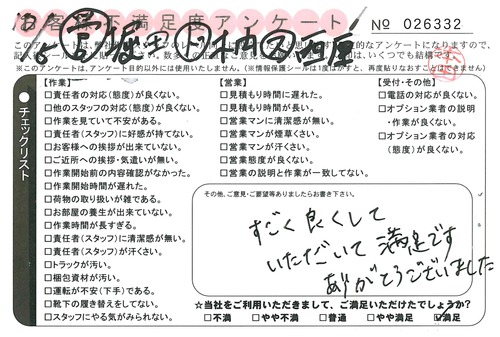 お客様不満足度アンケート
No 026332
※このアンケートは、アンケート目的以外には使用いたしません。(※情報保護シールは1度はがすと、再度貼りなおすことはできません)
チェックリスト
【作業】
□責任者の対応(態度)が良くない。
□他のスタッフの対応(態度)が良くない。
□作業を見ていて不安がある。
□責任者(スタッフ)に好感が持てない。
□お客様への挨拶が出来ていない。
□ご近所への挨拶・気遣いが無い。
□作業開始前の内容確認がなかった。
□作業開始時間が遅れた。
□荷物の取り扱いが雑である。
□お部屋の養生が出来ていない。
□作業時間が長すぎる。
□責任者(スタッフ)に清潔感が無い。
□責任者(スタッフ)が汗くさい。
□トラックが汚い。
□梱包資材が汚い。
□運転が不安(下手)である。
□靴下の履き替えをしてない。
□スタッフにやる気がみられない。
【営業】
□見積もり時間に遅れた。
□見積もり時間が長い。
□営業マンに清潔感が無い。
□営業マンが煙草くさい。
□営業マンが汗くさい。
□営業態度が良くない。
□営業の説明と作業が一致してない。
【受付・その他】
□電話の対応が良くない。
□オプション業者の説明
・作業が良くない。
□オプション業者の対応
(態度)が良くない。
その他、ご意見・ご要望等ありましたらお書き下さい。
すごく良くして
いただいて 満足です
ありがとうございました
☆当社をご利用いただきまして、ご満足いただけたでしょうか?
□不満 □やや不満 □普通 □やや満足 ☑満足